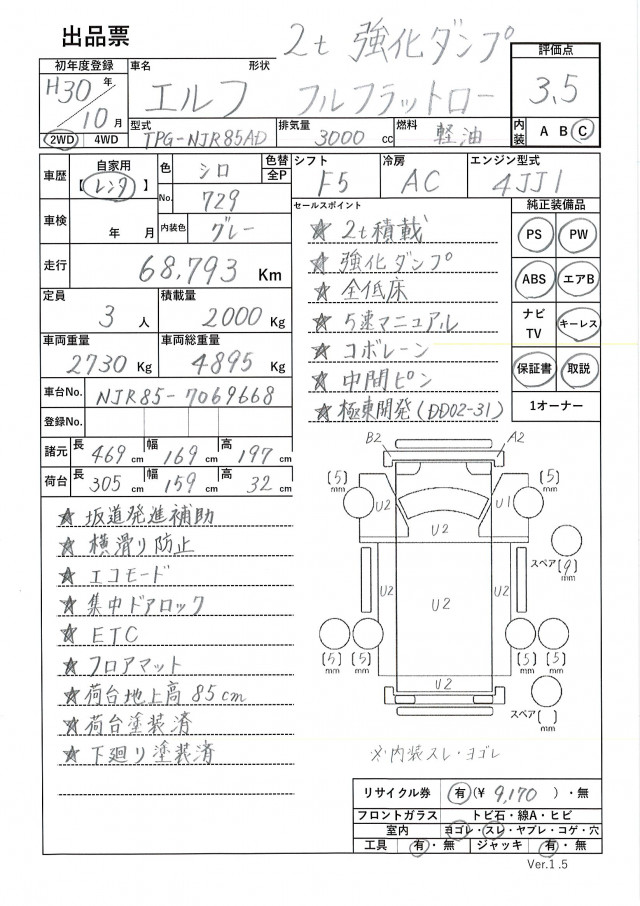 出品票
2t 強化ダンプ
初年度登録 車名 形状 評価点
H30年 エルフ フルフラットロー 3,5
10月
型式 排気量 燃料 内装 A B C
2WD 4WD TPG-NJR85AD 3000 cc 軽油
車歴 自家用 色 シロ 色替 シフト 冷房 エンジン型式
【レンタ】 全P F5 AC 4JJ1
No. 729 セールスポイント 純正装備品
車検 年 月 内装色 グレー ★ 2t積載 PS PW
走行 68,793 Km ★ 強化ダンプ
定員 積載量 ★ 全低床 ABS エアB
3 人 2000 Kg ★ 5速マニュアル ナビ TV キーレス
車両重量 車両総重量 ★ コボレーン
2730 Kg 4895 Kg ★ 中間ピン 保証書 取説
車台No. NJR85-7069668 ★ 極東開発(DD02-31) 1オーナー
登録No.
諸元 長 469 cm 幅 169 cm 高 197 cm
荷台 長 305 cm 幅 159 cm 高 32 cm
B2 A2
(5) mm (5) mm
U2 U1
U2
★ 坂道発進補助
★ 横滑り防止
スペア(9) mm
★ エコモード
U2 U2 U2
★ 集中ドアロック
★ ETC
★ フロアマット
(5) (5) (5) (5)
mm mm mm mm
★ 荷台地上高 85cm
U2
★ 荷台塗装済
スペア( ) mm
★ 下廻り塗装済
※内装スレ・ヨゴレ
リサイクル券 有(¥ 9,170 )・無
フロントガラス トビ石・線A・ヒビ
室内 ヨゴレ・スレ・ヤブレ・コゲ・穴
工具 有・無 ジャッキ 有・無
Ver.1.5